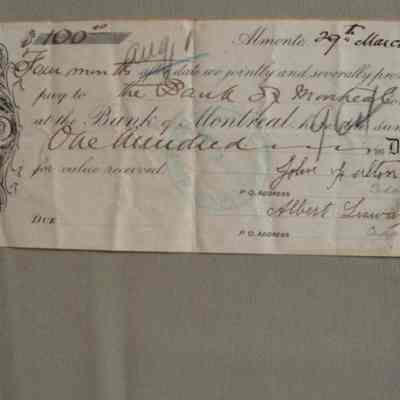 $100.00
Aug 1
Almonte, 29th March
Four months after date we jointly and severally pro
pay to the Bank of Montreal
at the Bank of Montreal here the sum
One Hundred 100 D
for value received. John
P.O. ADDRESS
Albert
DUE P.O. ADDRESS